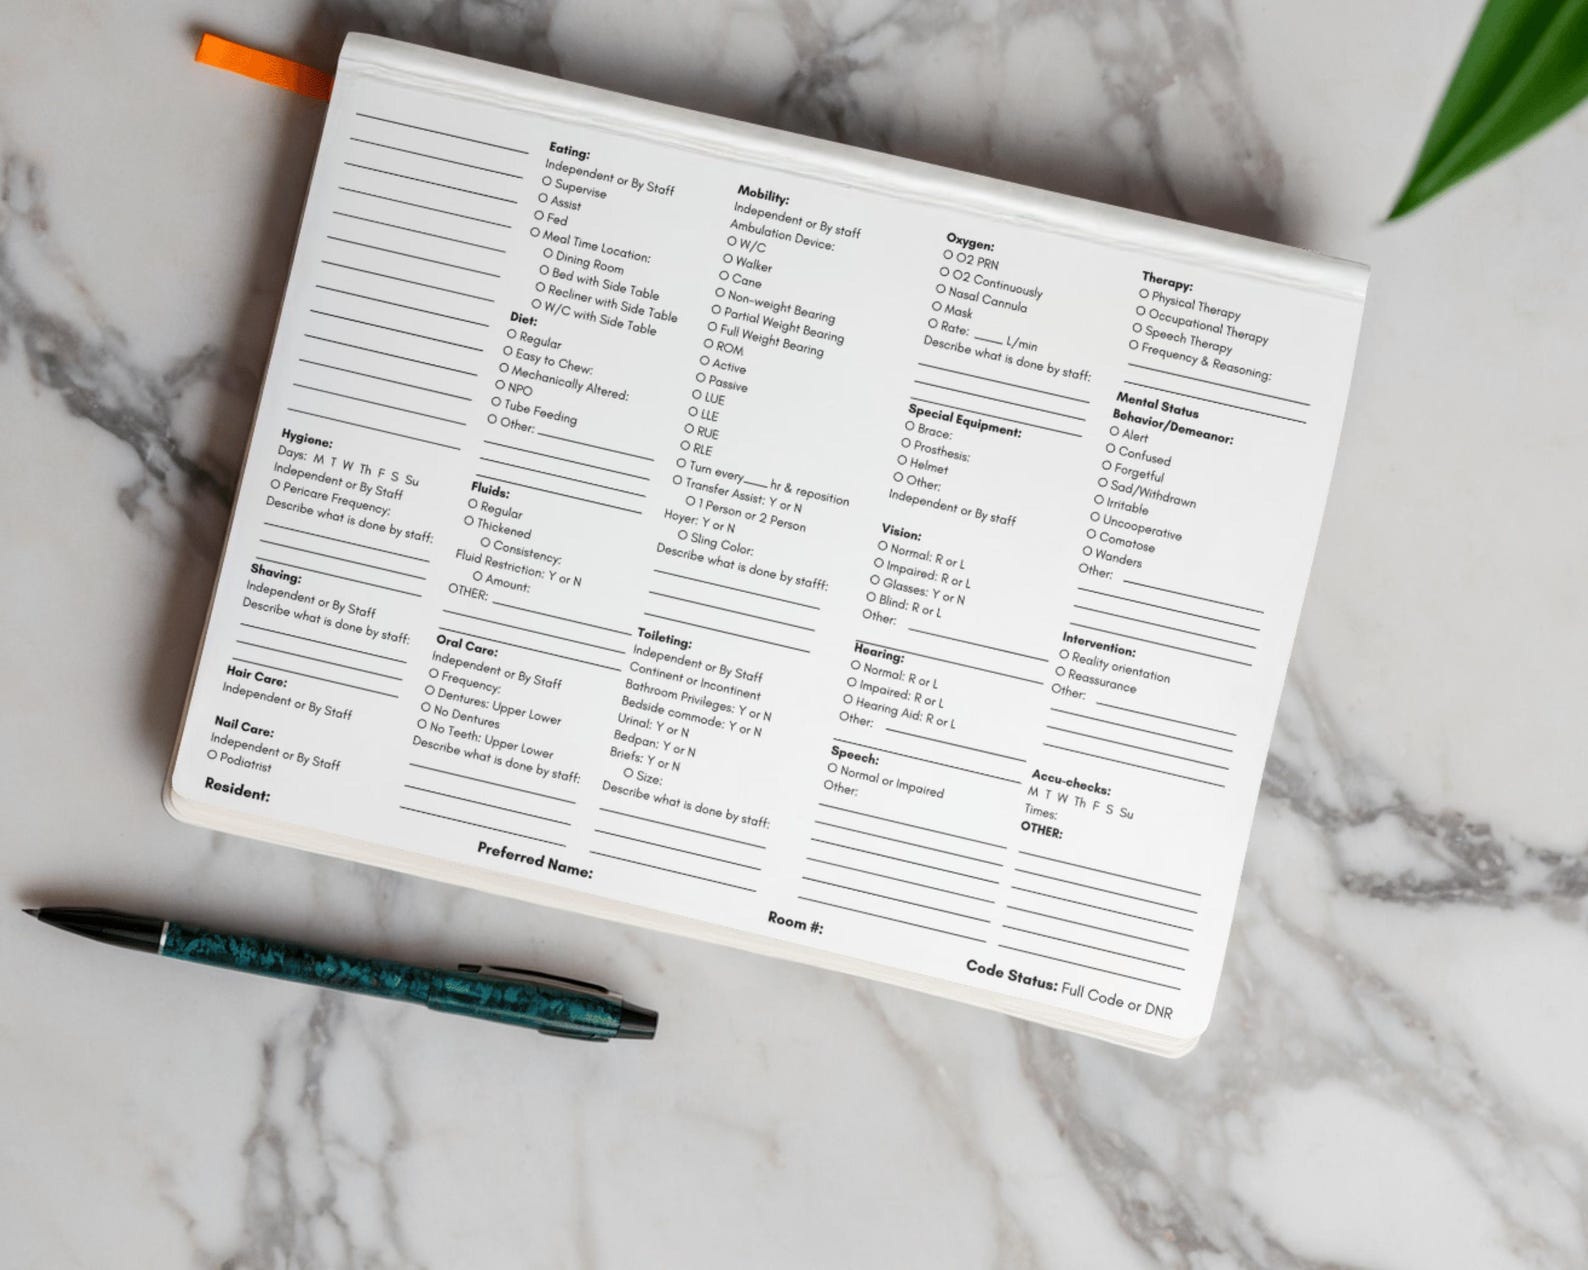 Hygiene:
Days: M T W Th F S Su
Independent or By Staff
Pericare Frequency:
Describe what is done by staff:
Shaving:
Independent or By Staff
Describe what is done by staff:
Hair Care:
Independent or By Staff
Nail Care:
Independent or By Staff
Podiatrist
Eating:
Independent or By Staff
Supervise
Assist
Fed
Meal Time Location:
Dining Room
Bed with Side Table
Recliner with Side Table
W/C with Side Table
Diet:
Regular
Easy to Chew:
Mechanically Altered:
NPO
Tube Feeding
Other:
Fluids:
Regular
Thickened
Consistency:
Fluid Restriction: Y or N
Amount:
OTHER:
Oral Care:
Independent or By Staff
Frequency:
Dentures: Upper Lower
No Dentures
No Teeth: Upper Lower
Describe what is done by staff:
Mobility:
Independent or By staff
Ambulation Device:
W/C
Walker
Cane
Non-weight Bearing
Partial Weight Bearing
Full Weight Bearing
ROM
Active
Passive
LUE
LLE
RUE
RLE
Turn every____ hr & reposition
Transfer Assist: Y or N
1 Person or 2 Person
Hoyer: Y or N
Sling Color:
Describe what is done by stafff:
Toileting:
Independent or By Staff
Continent or Incontinent
Bathroom Privileges: Y or N
Bedside commode: Y or N
Urinal: Y or N
Bedpan: Y or N
Briefs: Y or N
Size:
Describe what is done by staff:
Oxygen:
O2 PRN
O2 Continuously
Nasal Cannula
Mask
Rate: ____ L/min
Describe what is done by staff:
Special Equipment:
Brace:
Prosthesis:
Helmet
Other:
Independent or By staff
Vision:
Normal: R or L
Impaired: R or L
Glasses: Y or N
Blind: R or L
Other:
Hearing:
Normal: R or L
Impaired: R or L
Hearing Aid: R or L
Other:
Speech:
Normal or Impaired
Other:
Therapy:
Physical Therapy
Occupational Therapy
Speech Therapy
Frequency & Reasoning:
Mental Status
Behavior/Demeanor:
Alert
Confused
Forgetful
Sad/Withdrawn
Irritable
Uncooperative
Comatose
Wanders
Other:
Intervention:
Reality orientation
Reassurance
Other:
Accu-checks:
M T W Th F S Su
Times:
OTHER:
Resident:
Preferred Name:
Room #:
Code Status: Full Code or DNR